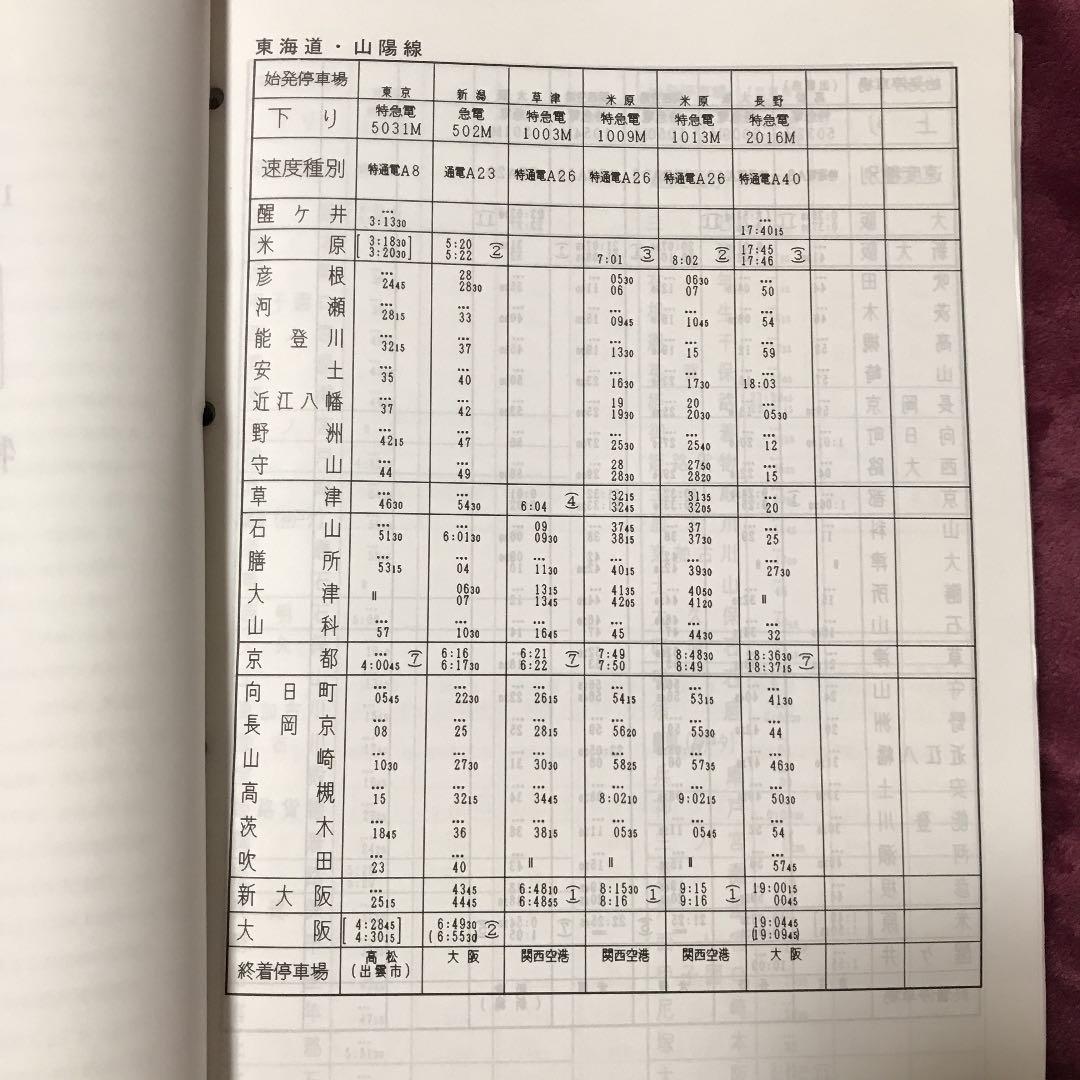 東海道・山陽線
始発停車場 東京 新潟 草津 米原 米原 長野
下り 特急電 5031M 急電 502M 特急電 1003M 特急電 1009M 特急電 1013M 特急電 2016M
速度種別 特通電A8 通電A23 特通電A26 特通電A26 特通電A26 特通電A40
醒ケ井 … 3:1330 … 17:4015
米原 [3:1830 3:2030] 5:20 5:22 ② 7:01 ③ 8:02 ② 17:45 17:46 ③
彦根 … 2445 28 2830 0530 06 0630 07 … 50
河瀬 … 2815 … 33 … 0945 … 1045 … 54
能登川 … 3215 … 37 … 1330 … 15 … 59
安土 … 35 … 40 … 1630 … 1730 … 18:03
近江八幡 … 37 … 42 19 1930 20 2030 … 0530
野洲 … 4215 … 47 … 2530 … 2540 … 12
守山 … 44 … 49 28 2830 2750 2820 … 15
草津 … 4630 … 5430 6:04 ④ 3215 3245 3135 3205 … 20
石山 … 5130 … 6:0130 09 0930 3745 3815 37 3730 … 25
膳所 … 5315 … 04 … 1130 … 4015 … 3930 … 2730
大津 〃 0630 07 1315 1345 4135 4205 4050 4120 〃
山科 … 57 … 1030 … 1645 … 45 … 4430 … 32
京都 … 4:0045 ⑦ 6:16 6:1730 6:21 6:22 ⑦ 7:49 7:50 8:4830 8:49 18:3630 18:3715 ⑦
向日町 … 0545 … 2230 … 2615 … 5415 … 5315 … 4130
長岡京 … 08 … 25 … 2815 … 5620 … 5530 … 44
山崎 … 1030 … 2730 … 3030 … 5825 … 5735 … 4630
高槻 … 15 … 3215 … 3445 … 8:0210 … 9:0215 … 5030
茨木 … 1845 … 36 … 3815 … 0535 … 0545 … 54
吹田 … 23 … 40 〃 〃 〃 … 5745
新大阪 … 2515 4345 4445 6:4810 6:4855 ① 8:1530 8:16 ① 9:15 9:16 ① 19:0015 0045
大阪 [4:2845 4:3015] 6:4930 (6:5530) ② 19:0445 (19:0945)
終着停車場 高松 (出雲市) 大阪 関西空港 関西空港 関西空港 大阪